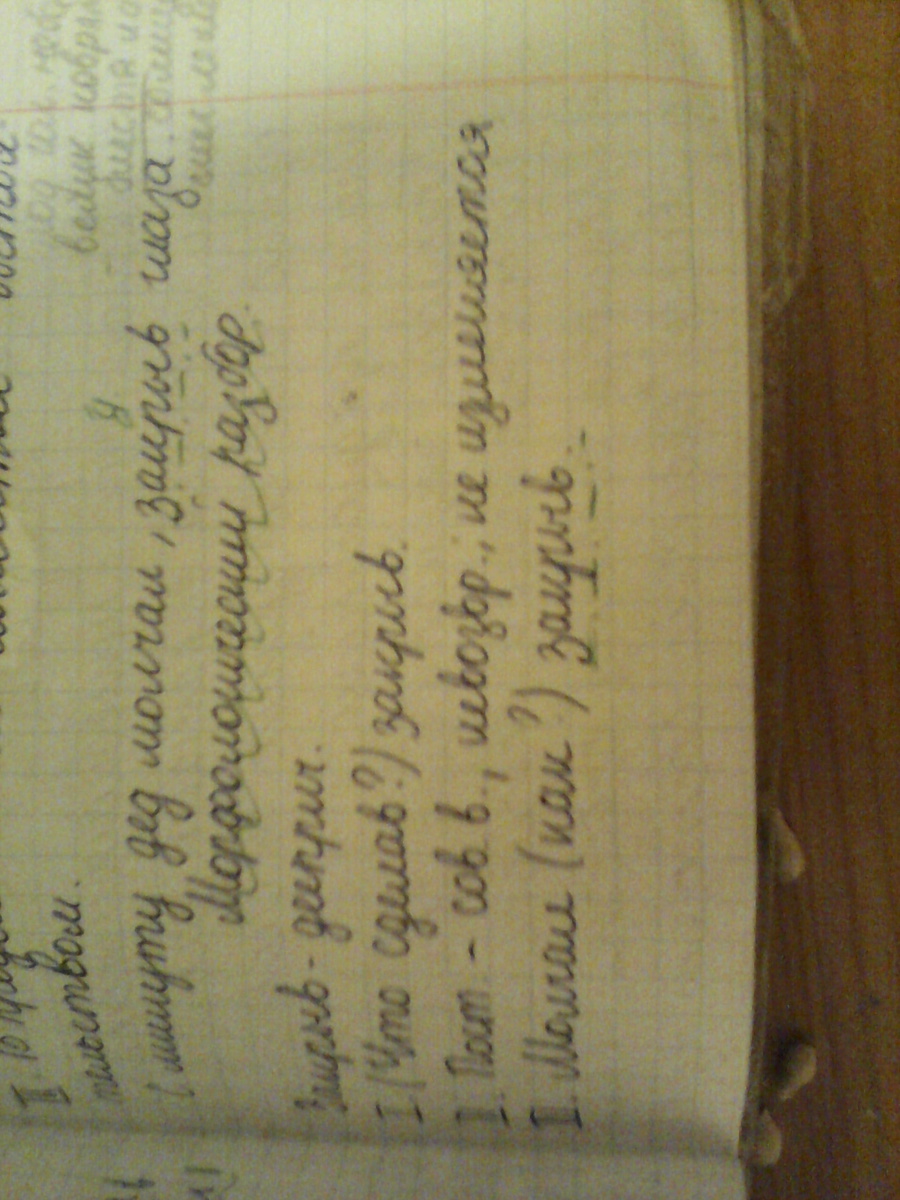 III. В пред
тельством.
минуту дед молчал, закрыв глаза.
Морфологический разбор.
Закрыв - дееприч.
I (Что сделав?) закрыв.
II. Пост. - сов в., невозвр., не изменяется
III. Молчал (как?) закрыв.